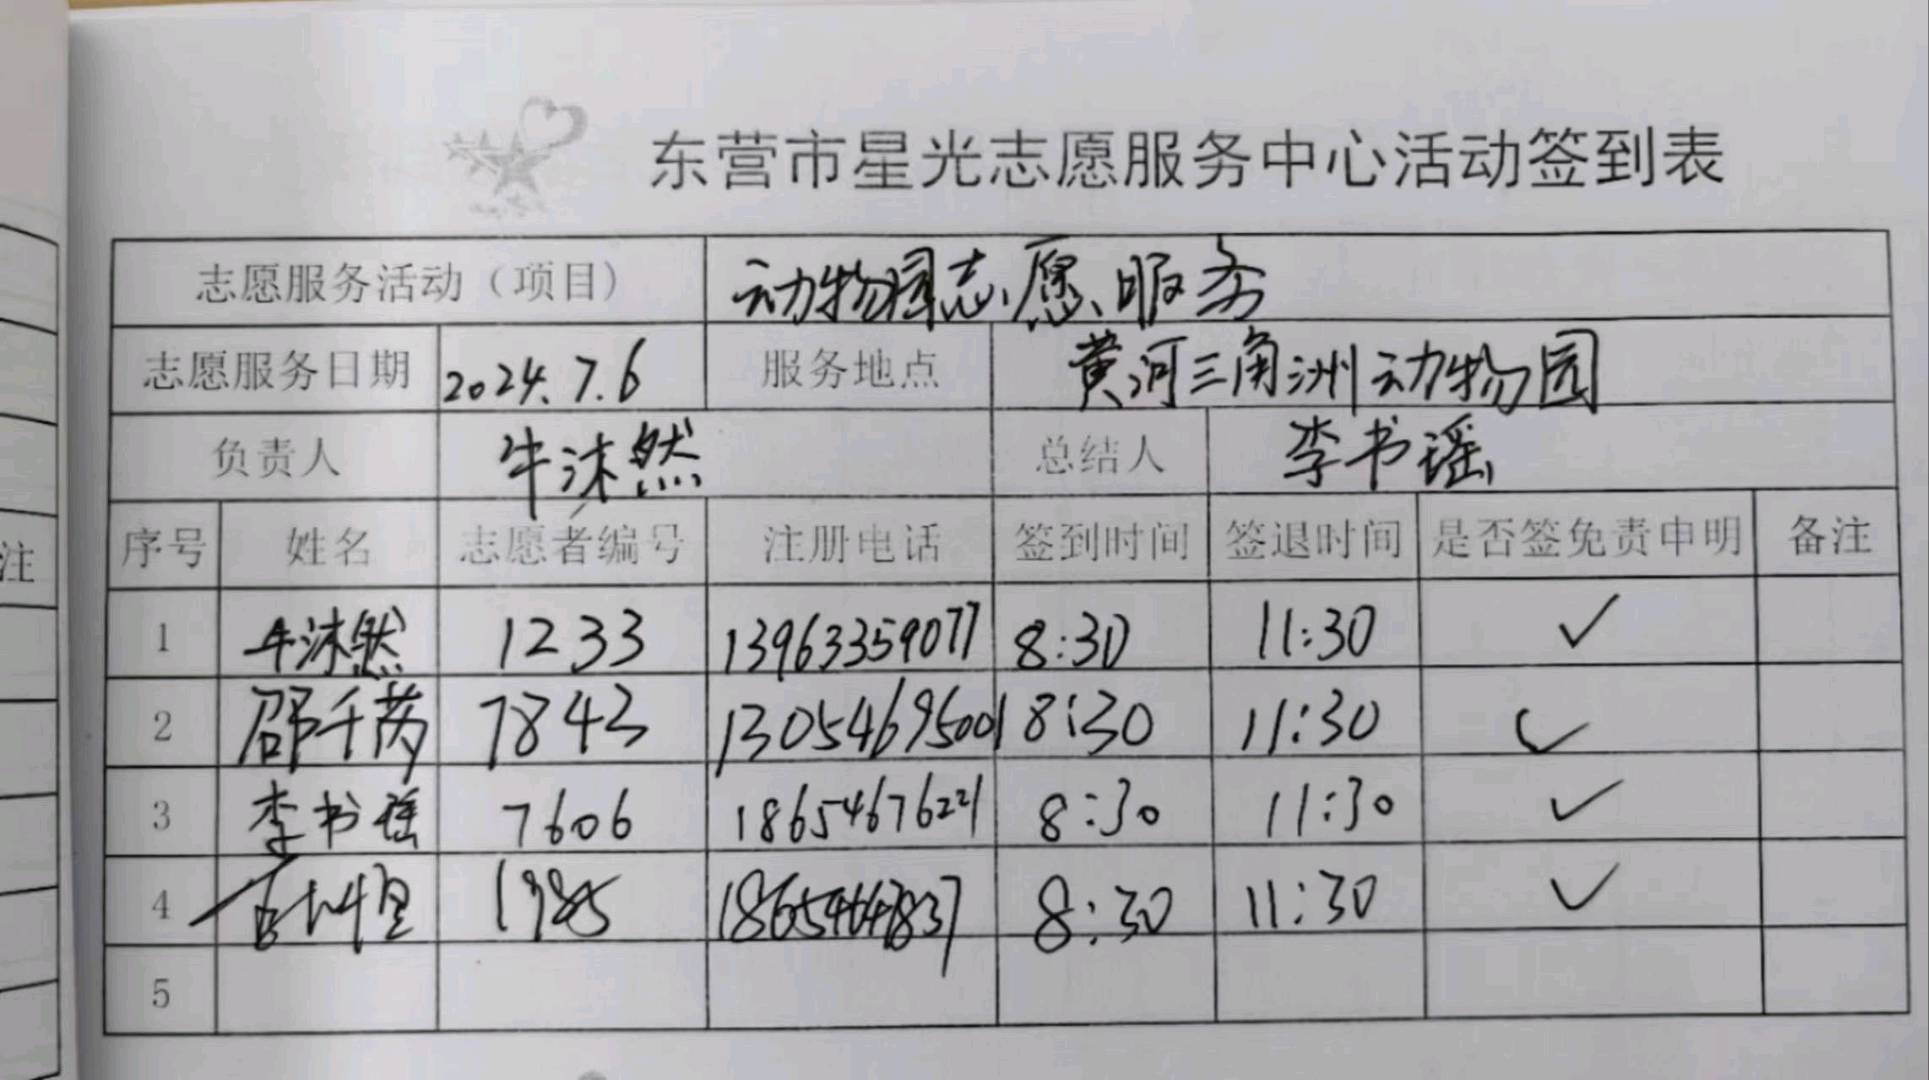 东营市星光志愿服务中心活动签到表
志愿服务活动（项目） 动物园志愿服务
志愿服务日期 2024.7.6 服务地点 黄河三角洲动物园
负责人 牛沐然 总结人 李书瑶
序号 姓名 志愿者编号 注册电话 签到时间 签退时间 是否签免责申明 备注
1 牛沐然 1233 13963359077 8:30 11:30 ✓
2 邵千芮 7843 13054695001 8:30 11:30 ✓
3 李书瑶 7606 18654676221 8:30 11:30 ✓
4 1985 8:30 11:30 ✓
5
注